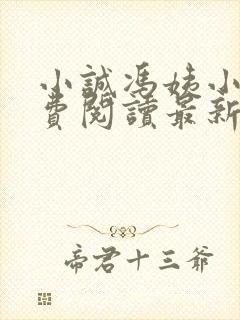 小誠馮姨小
費閱讀最新
帝君十三爺